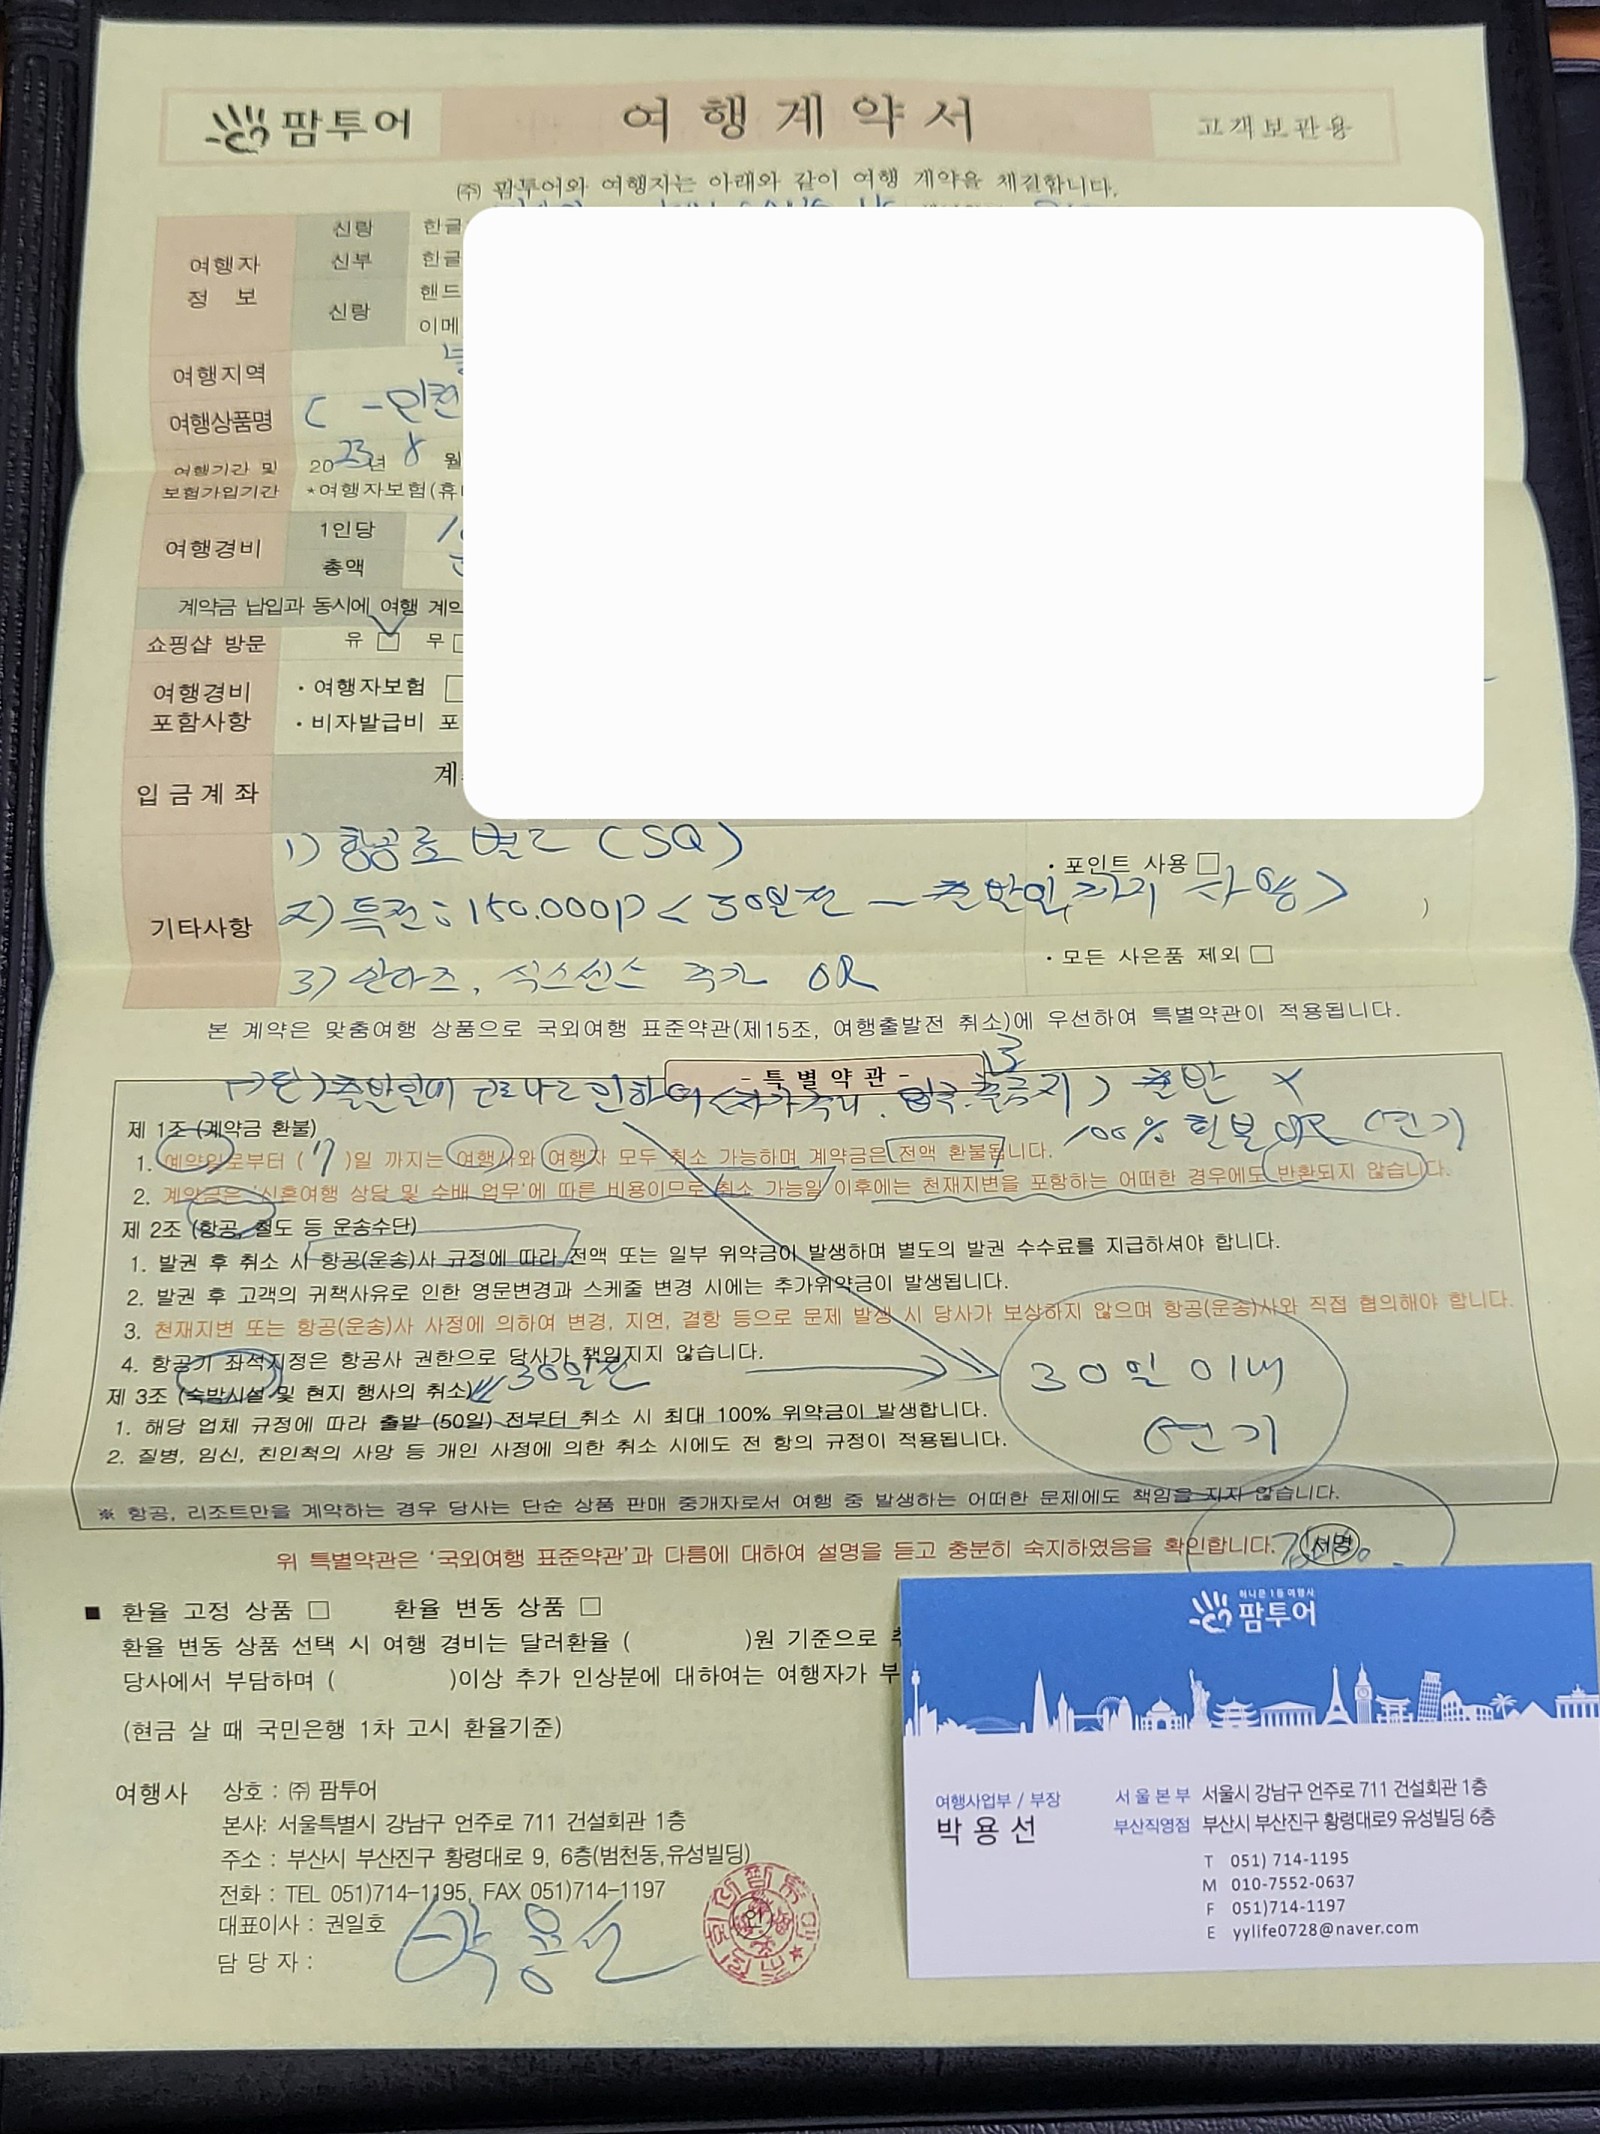 팜투어
여행계약서
고객보관용
㈜ 팜투어와 여행자는 아래와 같이 여행 계약을 체결합니다.
여행자 정 보
신랑 한글
신부 한글
신랑 핸드
이메
여행지역
여행상품명 ( - 인천
여행기간 및 보험가입기간
2023년 8 월
*여행자보험(휴
여행경비
1인당
총액
계약금 납입과 동시에 여행 계약
쇼핑샵 방문 유 □ 무
여행경비 포함사항
· 여행자보험
· 비자발급비 포
입금계좌
계
기타사항
1) 항공료 별도 (SQ)
· 포인트 사용 □
2) 특전 : 150.000P < 30일전 - 출발일까지 사용 >
)
3) 산다즈, 식스센스 추가 OR
· 모든 사은품 제외 □
본 계약은 맞춤여행 상품으로 국외여행 표준약관(제15조, 여행출발전 취소)에 우선하여 특별약관이 적용됩니다.
- 특별약관 -
출발일에 코로나로 인하여 <자가격리, 입국.출국금지> 로 출발 X
100% 환불 OR 연기
제 1조 (계약금 환불)
1. 예약일로부터 ( 7 )일 까지는 여행사와 여행자 모두 취소 가능하며 계약금은 전액 환불됩니다.
2. 계약금은 '신혼여행 상담 및 수배 업무'에 따른 비용이므로 취소 가능일 이후에는 천재지변을 포함하는 어떠한 경우에도 반환되지 않습니다.
제 2조 (항공, 철도 등 운송수단)
1. 발권 후 취소 시 항공(운송)사 규정에 따라 전액 또는 일부 위약금이 발생하며 별도의 발권 수수료를 지급하셔야 합니다.
2. 발권 후 고객의 귀책사유로 인한 영문변경과 스케줄 변경 시에는 추가위약금이 발생됩니다.
3. 천재지변 또는 항공(운송)사 사정에 의하여 변경, 지연, 결항 등으로 문제 발생 시 당사가 보상하지 않으며 항공(운송)사와 직접 협의해야 합니다.
4. 항공기 좌석지정은 항공사 권한으로 당사가 책임지지 않습니다.
30일 이내
연기
제 3조 (숙박시설 및 현지 행사의 취소) 30일전
1. 해당 업체 규정에 따라 출발 (50일) 전부터 취소 시 최대 100% 위약금이 발생합니다.
2. 질병, 임신, 친인척의 사망 등 개인 사정에 의한 취소 시에도 전 항의 규정이 적용됩니다.
※ 항공, 리조트만을 계약하는 경우 당사는 단순 상품 판매 중개자로서 여행 중 발생하는 어떠한 문제에도 책임을 지지 않습니다.
위 특별약관은 '국외여행 표준약관'과 다름에 대하여 설명을 듣고 충분히 숙지하였음을 확인합니다. 서명
■ 환율 고정 상품 □ 환율 변동 상품 □
환율 변동 상품 선택 시 여행 경비는 달러환율 ( )원 기준으로
당사에서 부담하며 ( )이상 추가 인상분에 대하여는 여행자가 부
(현금 살 때 국민은행 1차 고시 환율기준)
여행사 상호 : ㈜ 팜투어
본사: 서울특별시 강남구 언주로 711 건설회관 1층
주소 : 부산시 부산진구 황령대로 9, 6층(범천동,유성빌딩)
전화 : TEL 051)714-1195, FAX 051)714-1197
대표이사 : 권일호
담 당 자 : 박용선
인
허니문 1등 여행사
팜투어
여행사업부 / 부장
박용선
서울본부 서울시 강남구 언주로 711 건설회관 1층
부산직영점 부산시 부산진구 황령대로9 유성빌딩 6층
T 051) 714-1195
M 010-7552-0637
F 051)714-1197
E yylife0728@naver.com